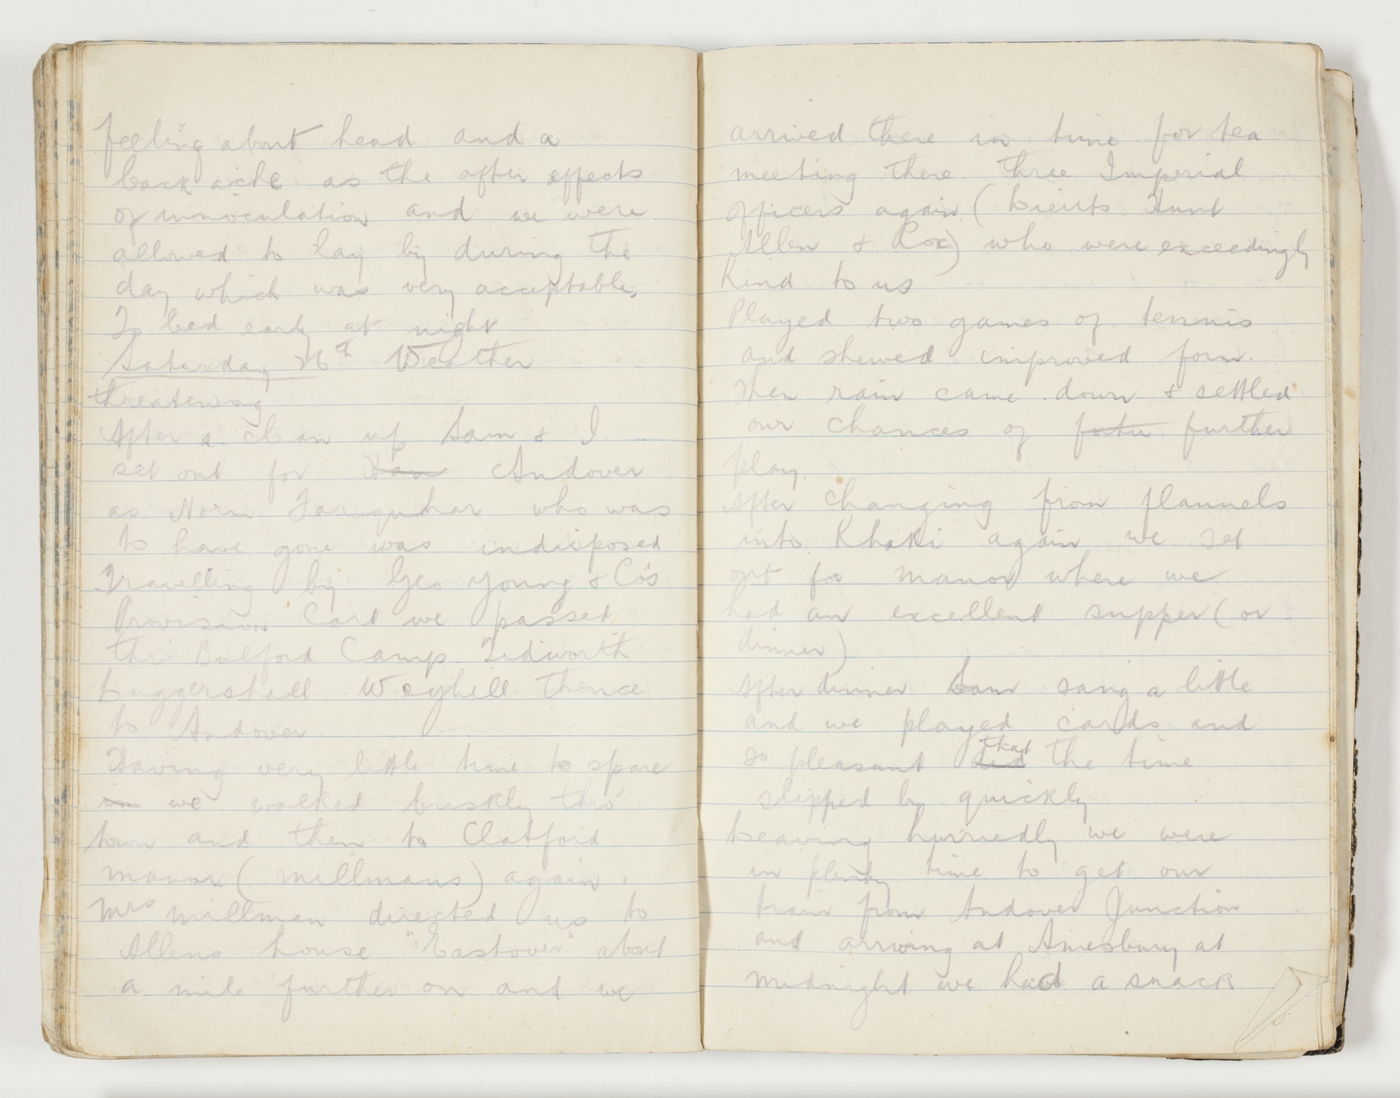 feeling about head and a
back ache as the after effects
of innoculation and we were
allowed to lay by during the
day which was very acceptable,
To bed early at night
Saturday Weather
threatening
After a clean up Sam & I
set out for Andover
as Norm Farquhar who was
to have gone was indisposed
Travelling by Geo Young & Co's
Provision Cart we passed
thro Bulford Camp Tidworth
Luggershall Weyhill thence
to Andover
Having very little time to spare
in we walked briskly thro'
town and then to Clatford
manor (Millmans) again.
Mrs Millman directed us to
Allens house "Eastover" about
a mile further on and we
arrived there in time for tea
meeting there three Imperial
officers again (Lieuts Hunt
Allen & Cox) who were exceedingly
kind to us
Played two games of tennis
and shewed improved form.
Then rain came down & settled
our chances of further
play.
After changing from flannels
into Khaki again we set
out for manor where we
had an excellent supper (or
dinner)
After dinner Sam sang a little
and we played cards and
so pleasant that the time
slipped by quickly
Leaving hurriedly we were
in plenty time to get our
train from Andover Junction
and arriving at Amesbury at
midnight we had a snack